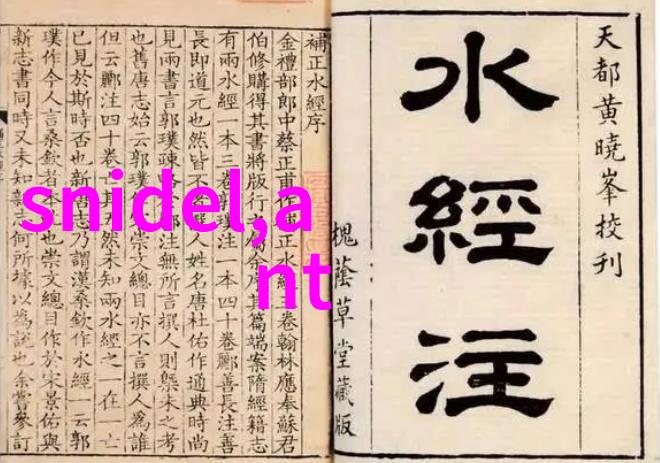 天都黃曉峯挍刊
水經注
槐蔭草堂藏版
補正水經序
金禮部郎中蔡正甫作補正水經三卷翰林應奉蘇君
伯修購得其書將版行之屬余序其篇端案隋經籍志
有兩水經一本三卷郭璞注一本四十卷酈善長注善
長即道元也然皆不著撰人姓名唐杜佑作通典時尚
見兩書言郭璞疎略酈注無所言撰人則槩未之考
也舊唐志始云郭璞作宋崇文總目亦不言撰人為誰
但云酈注四十卷亡其五然未知兩水經之一在一亡
已見於斯時否也新唐志乃謂漢桑欽作水經一云郭
璞作今人言桑欽者本此也崇文總目作於宋景佑與
新志書同時又未知新志何所據以為說也余嘗參訂
snidel,a
nt